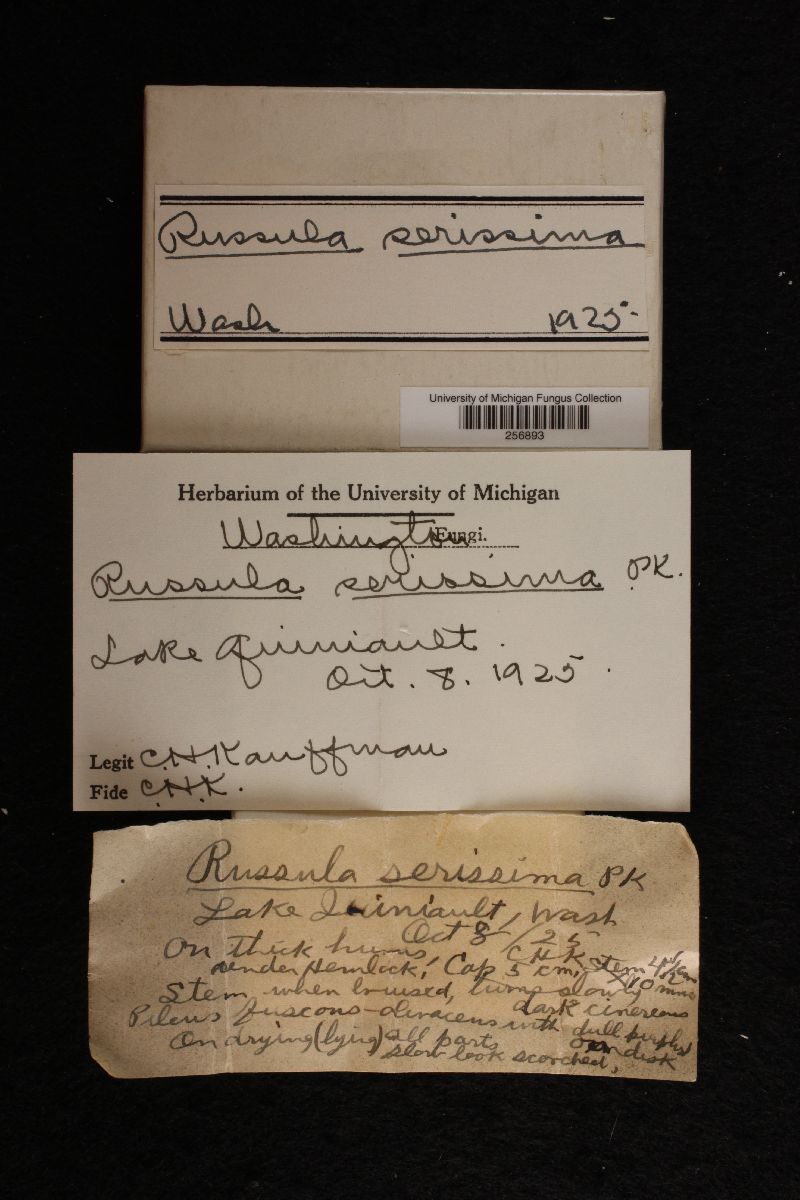 Russula serissima
Wash 1925-
University of Michigan Fungus Collection
256893
Herbarium of the University of Michigan
Washington Fungi.
Russula serissima PK.
Lake Quiniault.
Oct. 8. 1925.
Legit C.H. Kauffman
Fide C.H.K.
Russula serissima PK
Lake Quiniault, Wash
Oct 8 / 25
On thick humus, C H K
under Hemlock! Cap 5 cm, Stem 4 1/2 cm
Stem when bruised, turns slowly 10 mm
dark cinereous
Pileus fuscous-olivaceus with dull purplish
on disk
On drying (lying) all parts
slow look scorched,